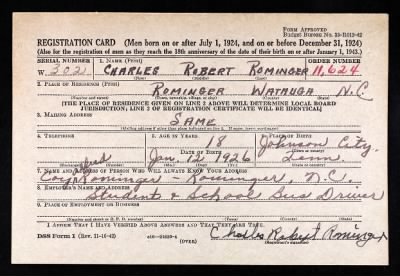 FORM APPROVED
Budget Bureau No. 33-R012-42
REGISTRATION CARD (Men born on or after July 1, 1924, and on or before December 31, 1924)
(Also for the registration of men as they reach the 18th anniversary of the date of their birth on or after January 1, 1943.)
SERIAL NUMBER 1. NAME (Print) ORDER NUMBER
W 302 CHARLES ROBERT ROMINGER 11,624
2. PLACE OF RESIDENCE (Print)
ROMINGER WATAUGA N.C.
(THE PLACE OF RESIDENCE GIVEN ON LINE 2 ABOVE WILL DETERMINE LOCAL BOARD
JURISDICTION; LINE 2 OF REGISTRATION CERTIFICATE WILL BE IDENTICAL)
3. MAILING ADDRESS
SAME
4. TELEPHONE 5. AGE IN YEARS 6. PLACE OF BIRTH
18 Johnson City
DATE OF BIRTH
Jan. 12 1926 Tenn.
7. NAME AND ADDRESS OF PERSON WHO WILL ALWAYS KNOW YOUR ADDRESS
Rominger - Rominger, N.C.
8. EMPLOYER'S NAME AND ADDRESS
Student & School Bus Driver
9. PLACE OF EMPLOYMENT OR BUSINESS
I AFFIRM THAT I HAVE VERIFIED ABOVE ANSWERS AND THAT THEY ARE TRUE.
DSS Form 1 (Rev. 11-16-42) (OVER) Charles Robert Rominger
(Registrant's signature)